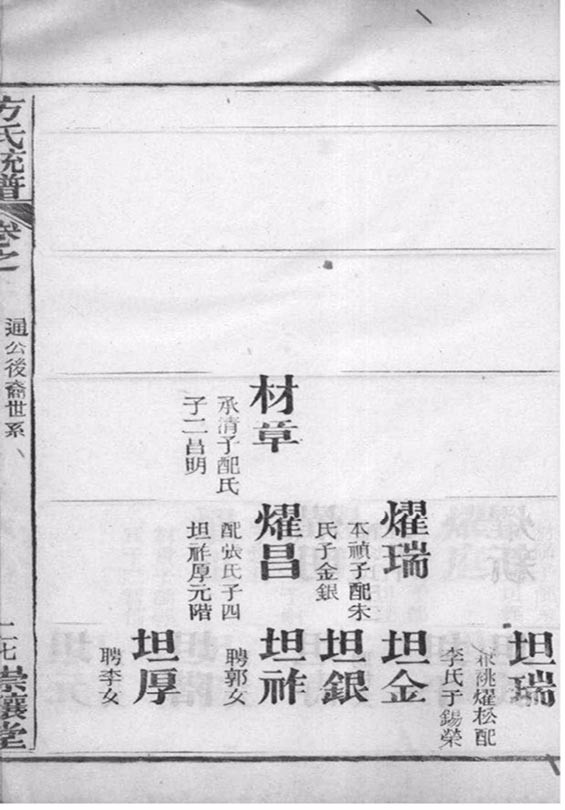 坦瑞
兼祧燿松配
李氏子錫榮
燿瑞
本禎子配朱
氏子金銀
坦金
坦銀
材章
承清子配氏
子二昌明
燿昌
配張氏子四
坦祚厚元階
坦祚
聘郭女
坦厚
聘李女
方氏統譜
卷之
通公後裔世系
二七
崇讓堂